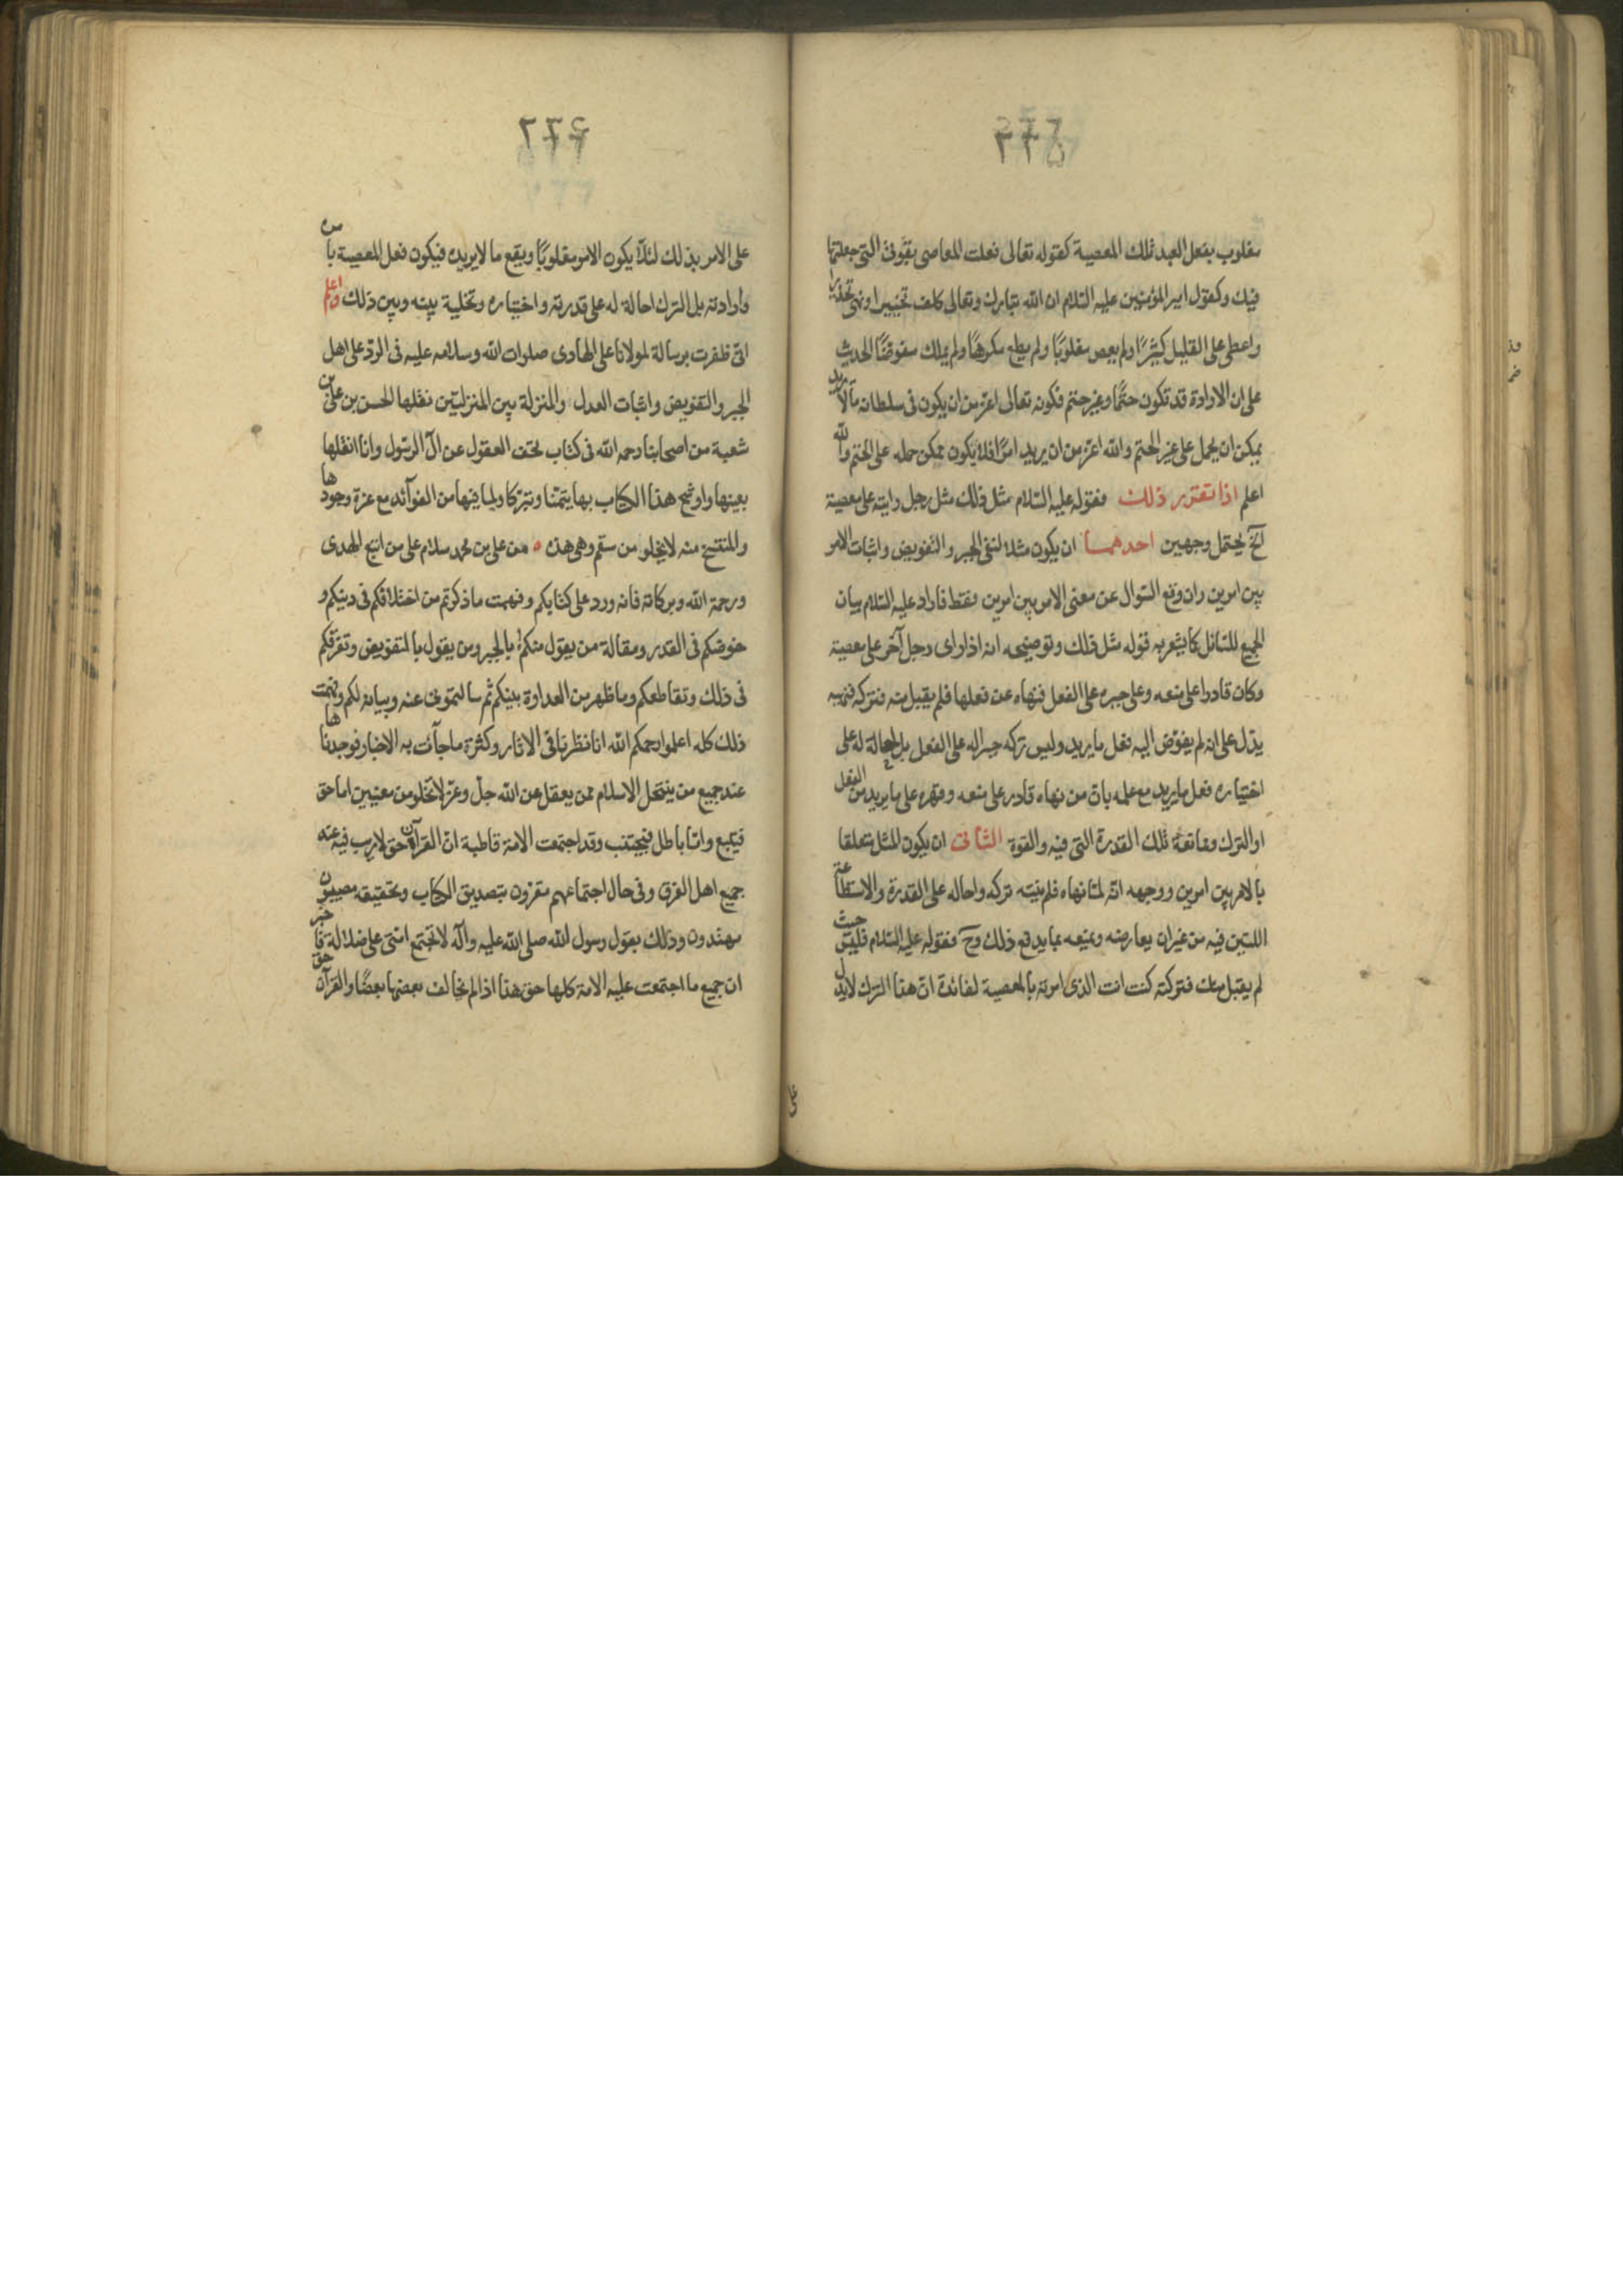 مغلوب بفعل العبد تلك المعصية كقوله تعالى فعلت المعاصى بقوتى التى جعلتها
فيك وكقول امير المؤمنين عليه السلام ان الله تبارك وتعالى كلف تخييرا ونهى تحذيرا
واعطى على القليل كثيرًا ولم يعص مغلوبًا ولم يطع مكرهًا ولم يملك مفوضًا الحديث
على ان الارادة قد تكون حتمًا وغير حتم فكونه تعالى اعز من ان يكون فى سلطانه ما لا يريد
يمكن ان يحمل على غير الحتم والله اعز من ان يريد امرًا فلا يكون يمكن حمله على الحتم والله
اعلم اذا تقرر ذلك فقوله عليه السلام مثل ذلك مثل رجل رايته على معصية
آلخ يحتمل وجهين احدهما ان يكون مثلا لنفى الجبر والتفويض واثبات الامر
بين امرين وان وقع السوال عن معنى الامر بين امرين فقط فاراد عليه السلام بيان
الجميع للسائل كما يشعر به قوله مثل ذلك وتوضيحه انه اذا راى رجل آخر على معصية
وكان قادرا على منعه وعلى جبره على الفعل فنهاه عن فعلها فلم يقبل منه فتركه فنهيه
يدل على انه لم يفوض اليه فعل ما يريد وليس تركه جبرا له على الفعل بل احالة له على
اختياره فعل ما يريد مع علمه بان من نهاه قادر على منعه وقهره على ما يريد من الفعل
او الترك وممانعة تلك القدرة التى فيه والقوة الثانى ان يكون المثل متعلقا
بالامر بين امرين ووجهه انه لما نهاه فلم ينته تركه واحاله على القدرة والاستطاعة
اللتين فيه من غير ان يعارضه ويمنعه بما يدفع ذلك وح فقوله عليه السلام فليس حيث
لم يقبل منك فتركته كنت انت الذى امرته بالمعصية لفائدة ان هذا الترك لا يدل
على
على الامر بذلك لئلا يكون الامر مغلوبًا ويقع ما لا يريده فيكون فعل المعصية بامره
وارادته بل الترك احالة له على قدرته واختياره وتخلية بينه وبين ذلك واعلم
انى ظفرت برسالة لمولانا على الهادى صلوات الله وسلامه عليه فى الرد على اهل
الجبر والتفويض واثبات العدل والمنزلة بين المنزلتين نقلها الحسن بن على بن
شعبة من اصحابنا رحمه الله فى كتاب تحف العقول عن آل الرسول وانا انقلها
بعينها واوشح هذا الكتاب بها تيمنا وتبركا ولما فيها من الفوآئد مع عزة وجودها
والمنتسخ منه لا يخلو من سقم وهى هذه من على بن محمد سلام على من اتبع الهدى
ورحمة الله وبركاته فانه ورد على كتابكم وفهمت ما ذكرتم من اختلافكم فى دينكم و
خوضكم فى القدر ومقالة من يقول منكم بالجبر ومن يقول بالتفويض وتفرقكم
فى ذلك وتقاطعكم وما ظهر من العداوة بينكم ثم سالتمونى عنه وبيانه لكم وفهمت
ذلك كله اعلموا رحمكم الله انا نظرنا فى الاثار وكثرة ما جآئت به الاخبار فوجدناها
عند جميع من ينتحل الاسلام ممن يعقل عن الله جل وعز لا تخلو من معنيين اما حق
فيتبع واما باطل فيجتنب وقد اجتمعت الامة قاطبة ان القرآن حق لا ريب فيه عند
جميع اهل الفرق وفى حال اجتماعهم مقرون بتصديق الكتاب وتحقيقه مصيبون
مهتدون وذلك بقول رسول الله صلى الله عليه وآله لا تجتمع امتى على ضلالة فاخبر
ان جميع ما اجتمعت عليه الامة كلها حق هذا اذا لم يخالف بعضها بعضًا والقرآن حق